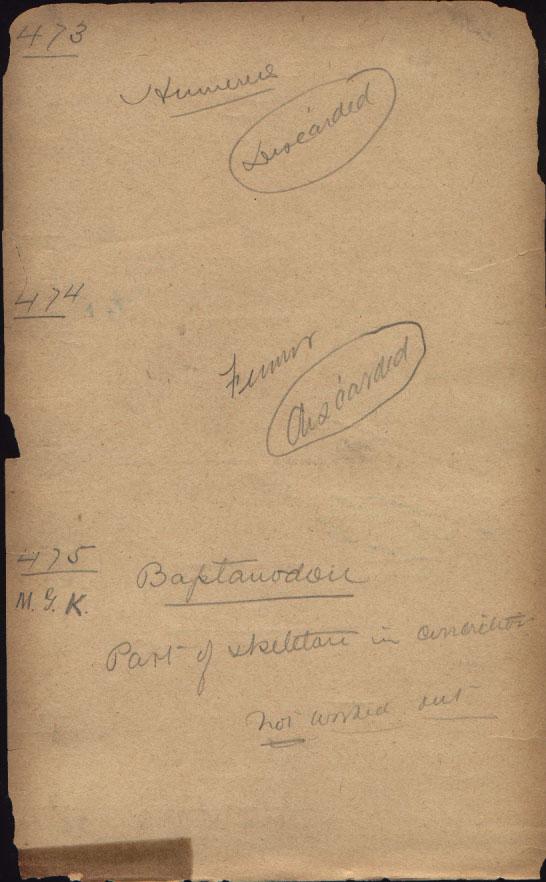 473
Humerus
Discarded
474
Femur
discarded
475
M. G. K.
Baptanodon
Part of skeleton in concretion
not worked out